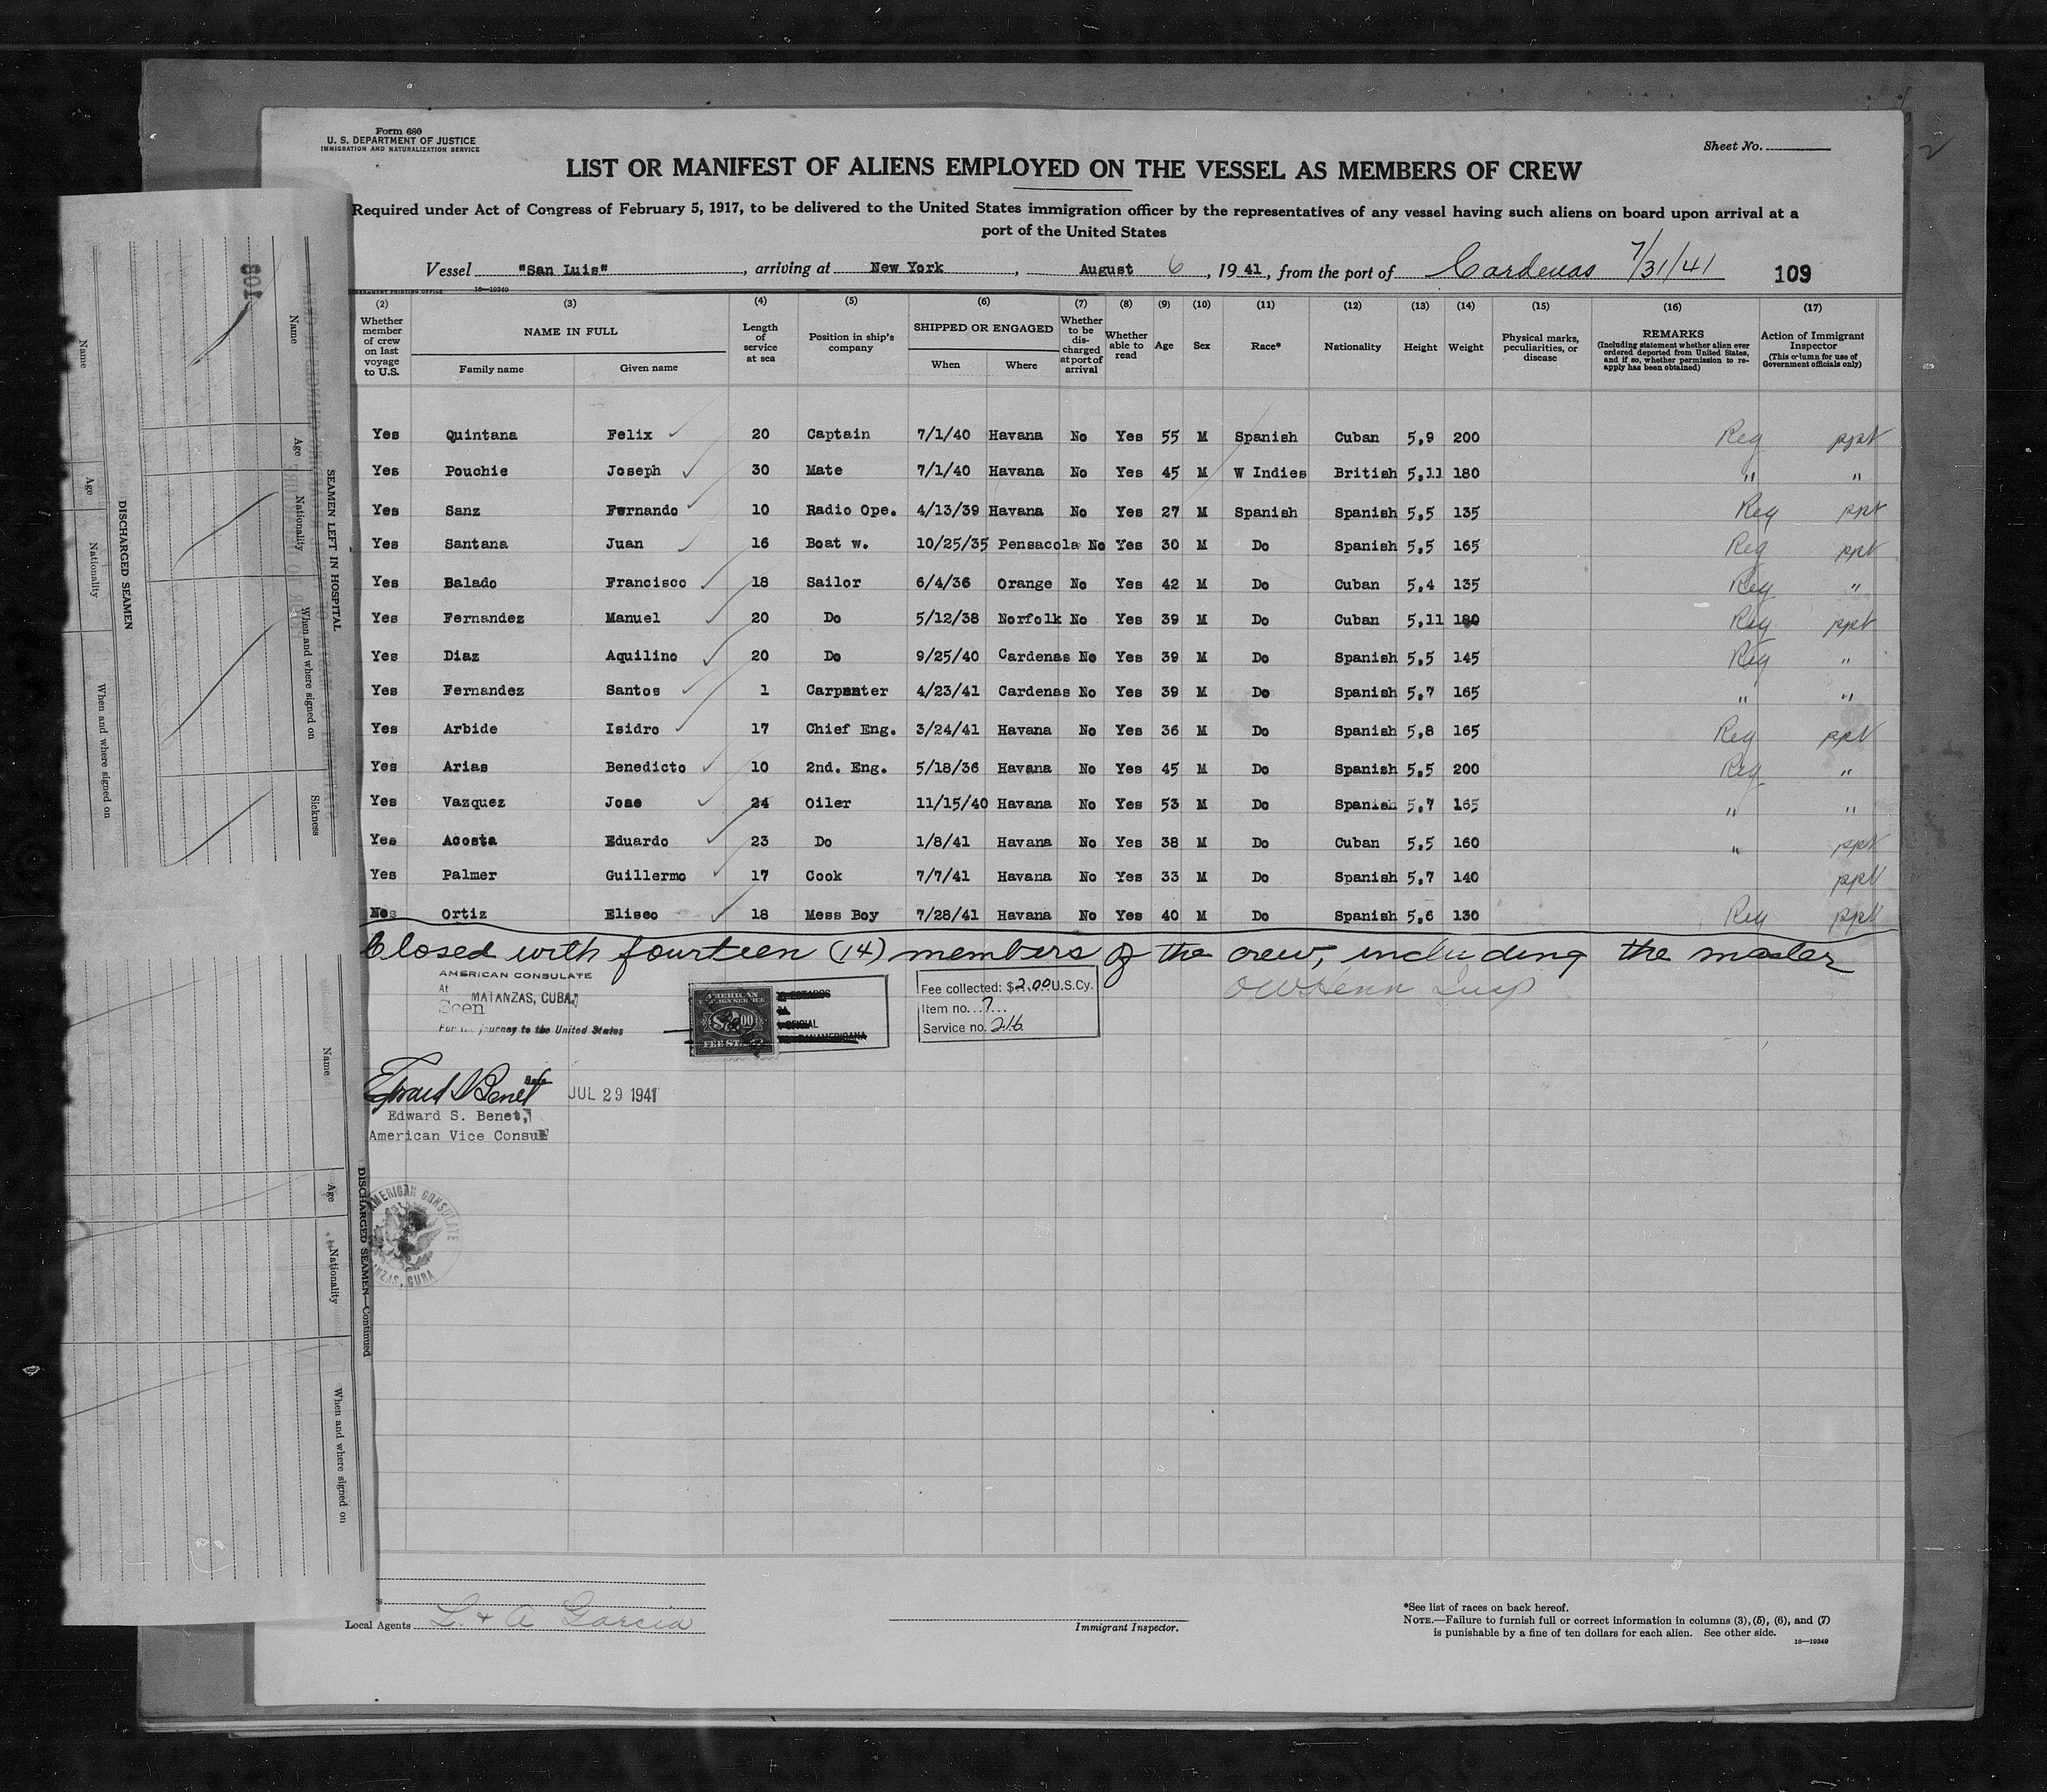 Form 680
U. S. DEPARTMENT OF JUSTICE
IMMIGRATION AND NATURALIZATION SERVICE
Sheet No.
LIST OR MANIFEST OF ALIENS EMPLOYED ON THE VESSEL AS MEMBERS OF CREW
Required under Act of Congress of February 5, 1917, to be delivered to the United States immigration officer by the representatives of any vessel having such aliens on board upon arrival at a
port of the United States
Vessel "San Luis", arriving at New York, August 6, 1941, from the port of Cardenas 7/31/41 109
GOVERNMENT PRINTING OFFICE 16—10349
(2) (3) (4) (5) (6) (7) (8) (9) (10) (11) (12) (13) (14) (15) (16) (17)
Whether member of crew on last voyage to U.S.
NAME IN FULL
Family name Given name
Length of service at sea
Position in ship's company
SHIPPED OR ENGAGED
When Where
Whether to be discharged at port of arrival
Whether able to read
Age Sex Race* Nationality Height Weight
Physical marks, peculiarities, or disease
REMARKS
(Including statement whether alien ever ordered deported from United States, and if so, whether permission to reapply has been obtained)
Action of Immigrant Inspector
(This column for use of Government officials only)
Yes Quintana Felix 20 Captain 7/1/40 Havana No Yes 55 M Spanish Cuban 5,9 200 Reg ppt
Yes Pouchie Joseph 30 Mate 7/1/40 Havana No Yes 45 M W Indies British 5,11 180 " "
Yes Sanz Fernando 10 Radio Ope. 4/13/39 Havana No Yes 27 M Spanish Spanish 5,5 135 Reg ppt
Yes Santana Juan 16 Boat w. 10/25/35 Pensacola No Yes 30 M Do Spanish 5,5 165 Reg ppt
Yes Balado Francisco 18 Sailor 6/4/36 Orange No Yes 42 M Do Cuban 5,4 135 Reg "
Yes Fernandez Manuel 20 Do 5/12/38 Norfolk No Yes 39 M Do Cuban 5,11 180 Reg ppt
Yes Diaz Aquilino 20 Do 9/25/40 Cardenas No Yes 39 M Do Spanish 5,5 145 Reg "
Yes Fernandez Santos 1 Carpenter 4/23/41 Cardenas No Yes 39 M Do Spanish 5,7 165 " "
Yes Arbide Isidro 17 Chief Eng. 3/24/41 Havana No Yes 36 M Do Spanish 5,8 165 Reg ppt
Yes Arias Benedicto 10 2nd. Eng. 5/18/36 Havana No Yes 45 M Do Spanish 5,5 200 Reg "
Yes Vazquez Jose 24 Oiler 11/15/40 Havana No Yes 53 M Do Spanish 5,7 165 " "
Yes Acosta Eduardo 23 Do 1/8/41 Havana No Yes 38 M Do Cuban 5,5 160 " ppt
Yes Palmer Guillermo 17 Cook 7/7/41 Havana No Yes 33 M Do Spanish 5,7 140 ppt
No Ortiz Eliseo 18 Mess Boy 7/28/41 Havana No Yes 40 M Do Spanish 5,6 130 Reg ppt
Closed with fourteen (14) members of the crew, including the master
AMERICAN CONSULATE
At MATANZAS, CUBA
Seen
For the journey to the United States
AMERICAN FOREIGN SERVICE
$2.00
FEE STAMP
Fee collected: $2.00 U.S.Cy.
Item no. 7
Service no. 216
JUL 29 1941
Edward S. Benet,
American Vice Consul
AMERICAN CONSULATE
MATANZAS, CUBA
Local Agents L. & A Garcia
Immigrant Inspector.
*See list of races on back hereof.
NOTE.—Failure to furnish full or correct information in columns (3), (5), (6), and (7)
is punishable by a fine of ten dollars for each alien. See other side.
16—10349
108
SEAMEN LEFT IN HOSPITAL
Name Age Nationality When and where signed on Sickness
DISCHARGED SEAMEN
Name Age Nationality When and where signed on
DISCHARGED SEAMEN—Continued
Name Age Nationality When and where signed on